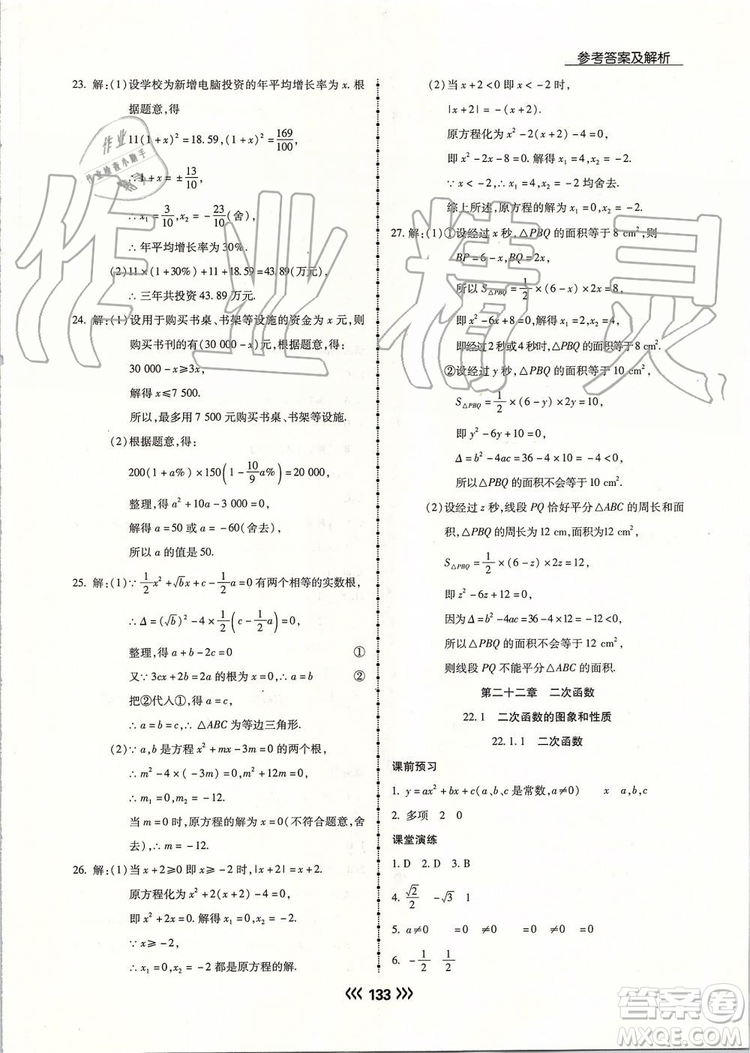 参考答案及解析
23. 解:(1)设学校为新增电脑投资的年平均增长率为 x. 根
据题意,得
11(1+x)²=18.59,(1+x)²=169/100,
∴1+x=±13/10,
∴x₁=3/10,x₂=-23/10(舍),
∴年平均增长率为30%.
(2)11×(1+30%)+11+18.59=43.89(万元)
∴三年共投资43.89万元.
24. 解:(1)设用于购买书桌、书架等设施的资金为 x 元,则
购买书刊的有(30 000-x)元,根据题意,得:
30 000-x≥3x,
解得 x≤7 500.
所以,最多用7 500元购买书桌、书架等设施.
(2)根据题意,得:
200(1+a%)×150(1-10/9 a%)=20 000,
整理,得 a²+10a-3 000=0,
解得 a=50 或 a=-60(舍去),
所以 a 的值是50.
25. 解:(1)∵1/2x²+√bx+c-1/2a=0有两个相等的实数根,
∴Δ=(√b)²-4×1/2(c-1/2a)=0,
整理,得 a+b-2c=0 ①
又∵3cx+2b=2a 的根为 x=0,∴a=b ②
把②代入①,得 a=c,
∴a=b=c,∴△ABC为等边三角形.
(2)∵a,b是方程 x²+mx-3m=0 的两个根,
∴m²-4×(-3m)=0,
即 m²+12m=0,∴m₁=0,m₂=-12.
当 m=0 时,原方程的解为 x=0(不符合题意,舍
去),∴m=-12.
26. 解:(1)当 x+2≥0 即 x≥-2 时,|x+2|=x+2.
原方程化为 x²+2(x+2)-4=0,
即 x²+2x=0. 解得 x₁=0,x₂=-2.
∵x≥-2,
∴x₁=0,x₂=-2都是原方程的解.
(2)当 x+2<0 即 x<-2 时,
|x+2|=-(x+2).
原方程化为 x²-2(x+2)-4=0,
即 x²-2x-8=0. 解得 x₁=4,x₂=-2.
∵x<-2,∴x₁=4,x₂=-2均舍去.
综上所述,原方程的解为 x₁=0,x₂=-2.
27. 解:(1)①设经过 x 秒,△PBQ的面积等于8 cm²,则
BP=6-x,BQ=2x,
所以 S△PBQ=1/2×(6-x)×2x=8,
即 x²-6x+8=0,解得:x=2或4,
即经过2秒或4秒时,△PBQ的面积等于8 cm².
②设经过 y 秒,△PBQ的面积等于10 cm²,则
S△PBQ=1/2×(6-y)×2y=10,
即 y²-6y+10=0,
Δ=b²-4ac=36-4×10=-4<0,
所以△PBQ的面积不会等于10 cm².
(2)设经过 z 秒,线段PQ恰好平分△ABC的周长和面
积,△PBQ的周长为12 cm,面积等于12 cm²,
S△PBQ=1/2×(6-z)×2z=12,
即 z²-6z+12=0,
因为Δ=b²-4ac=36-4×12=-12<0,
所以△PBQ的面积不会等于12 cm²,
则线段PQ不能平分△ABC的面积.
第二十二章 二次函数
22.1 二次函数的图象和性质
22.1.1 二次函数
课前预习
1. y=ax²+bx+c(a、b、c是常数,a≠0) x a,b,c
2. 多项 2 0
课堂演练
1. D 2. D 3. B
4. √2/2 -√3 1
5. a≠0 a≠0 a≠0
6. -1/2 1/2
133
作业精灵
作业
作业检查小助手
答案圈
MXQE.COM